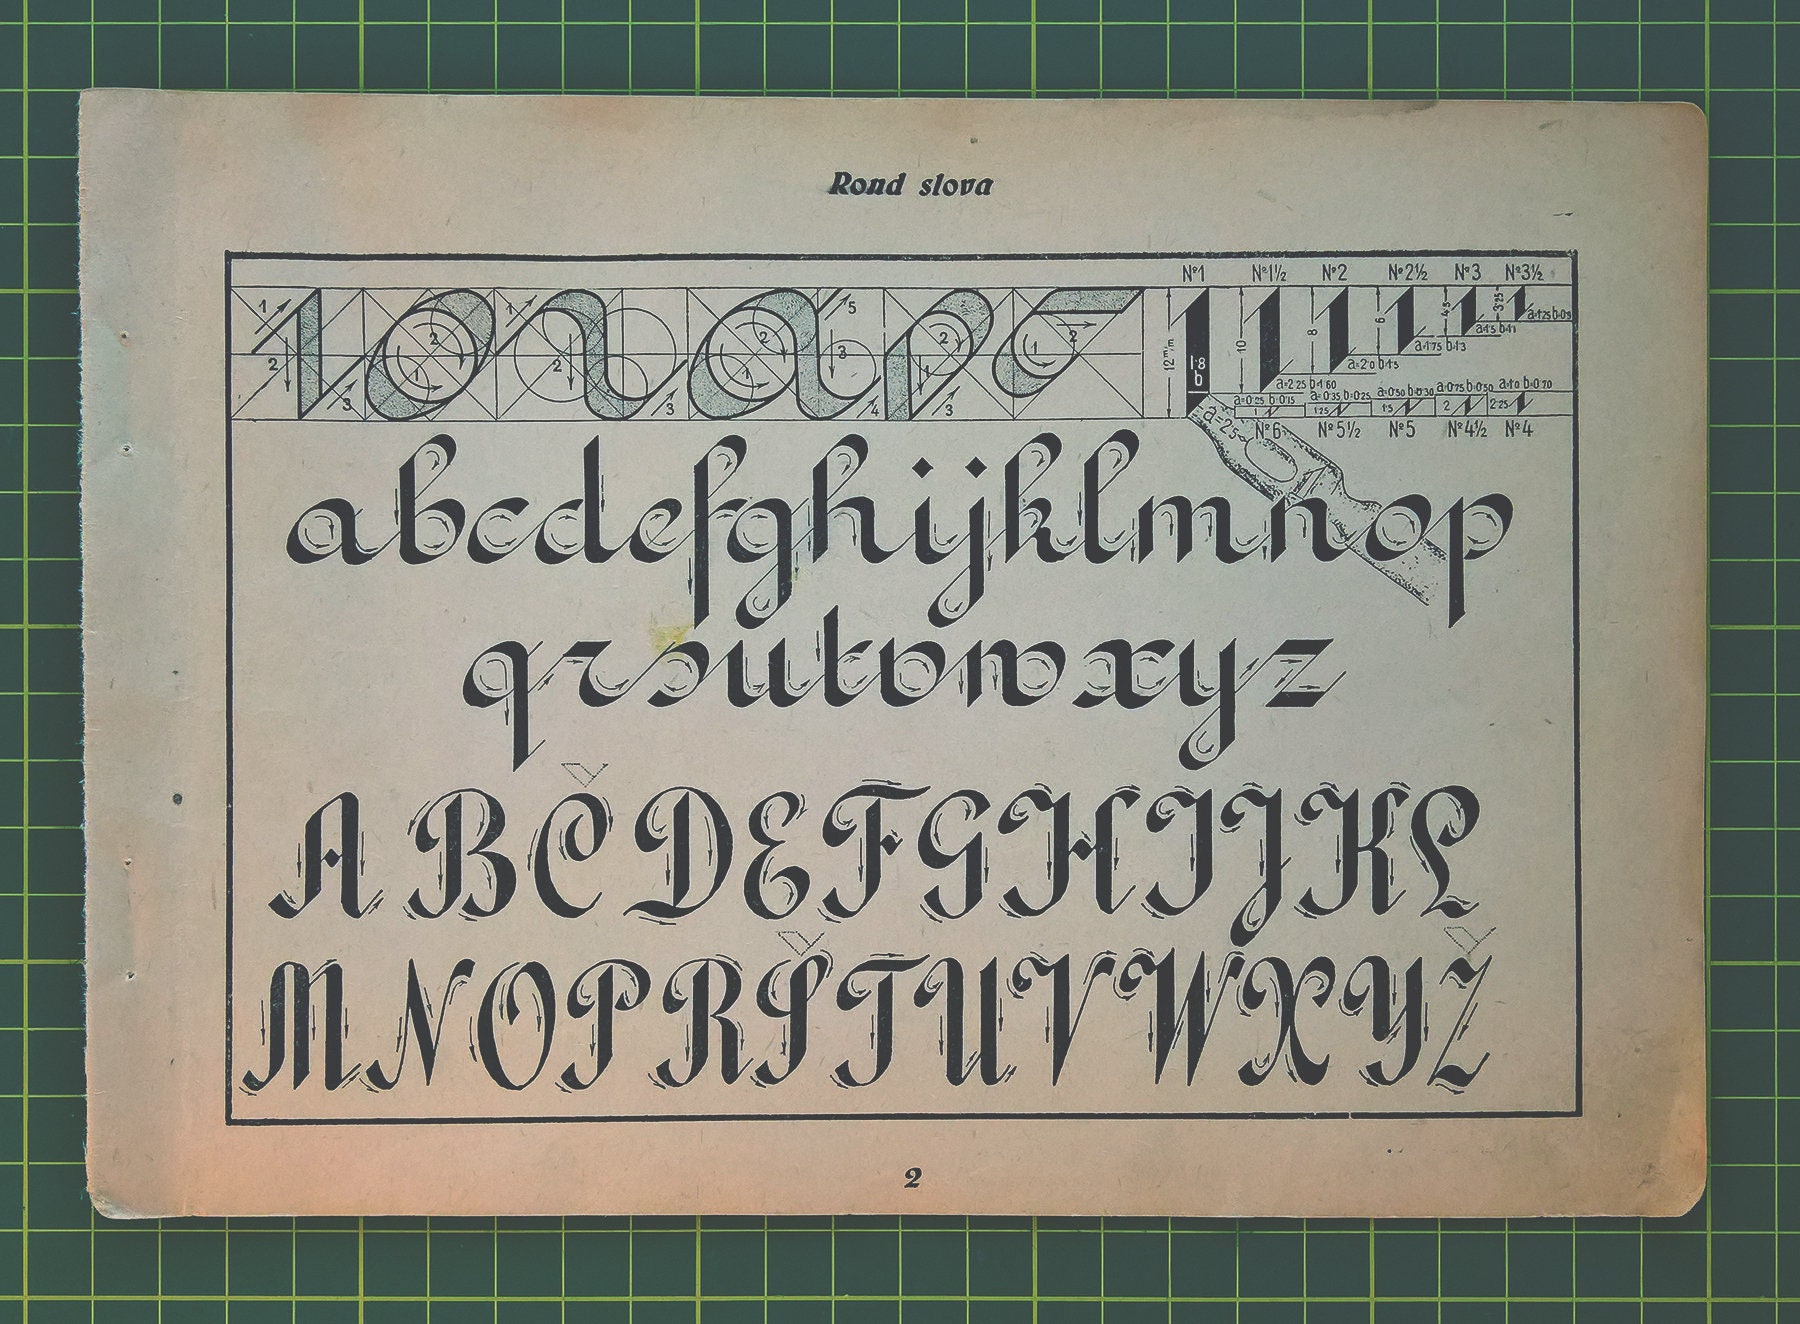 Rond slova
1 2 3 1 2 1 2 3 1 2 3 4 5 1 2 3 1 2
№1 №1½ №2 №2½ №3 №3½
12 m/m 10 8 6 4·5 3·25
1·8 b
a=2·25 b·1·60 a=2·0 b·1·5 a·1·75 b·1·3 a·1·5 b·1·1 a·1·25 b·0·9
a=0·25 b·0·15 a=0·35 b·0·25 a=0·50 b=0·30 a·0·75 b·0·50 a·1·0 b·0·70
1 1·25 1·5 2 2·25
a=2·5
№6 №5½ №5 №4½ №4
abcdefghijklmnop
qrsutvwxyz
ABČDEFGHIJKL
MNOPRŠTUVWXYŽ
2